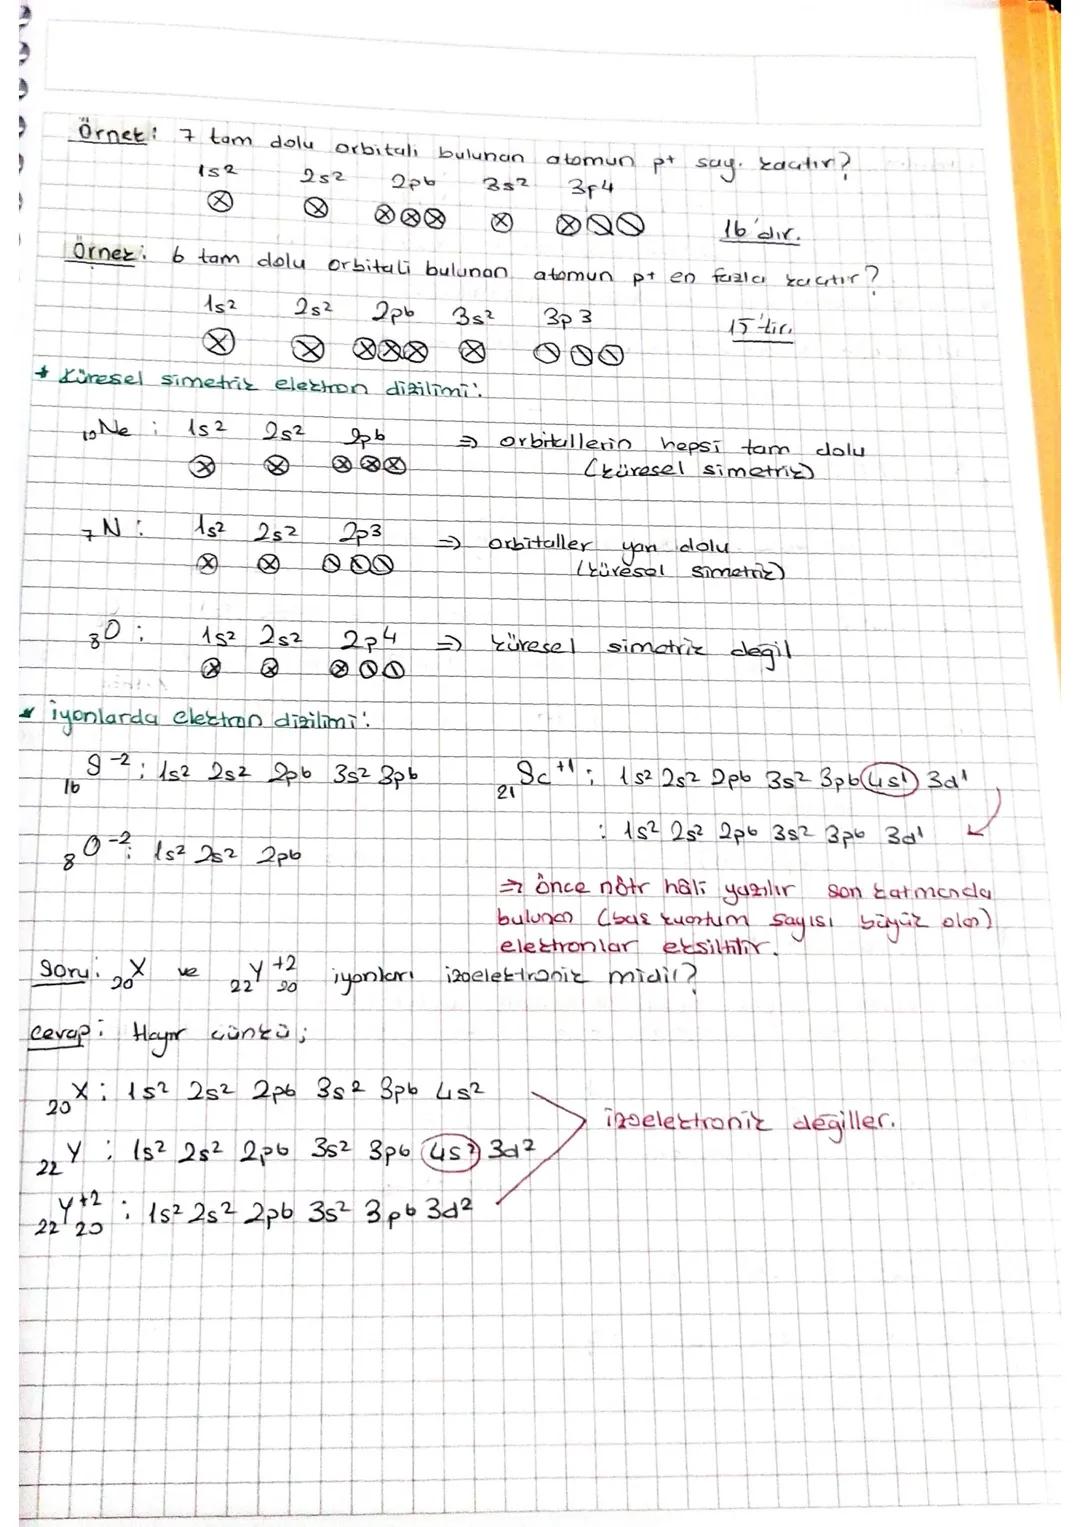 Örnek: 7 tam dolu orbitali bulunan atomun p+ say. kaçtır?
1s2 2s2 2p6 3s2 3p4
16'dır.
Örnek: 6 tam dolu orbitali bulunan atomun p+ en fazla kaçtır?
1s2 2s2 2p6 3s2 3p3
15'tir.
* Küresel simetrik elektron dizilimi:
10Ne : 1s2 2s2 2p6 ⇒ orbitallerin hepsi tam dolu
(küresel simetrik)
7N : 1s2 2s2 2p3 ⇒ orbitaller yarı dolu
(küresel simetrik)
8O : 1s2 2s2 2p4 ⇒ küresel simetrik değil
* iyonlarda elektron dizilimi:
16S-2 : 1s2 2s2 2p6 3s2 3p6
21Sc+1 : 1s2 2s2 2p6 3s2 3p6 4s1 3d1
: 1s2 2s2 2p6 3s2 3p6 3d1
8O-2 : 1s2 2s2 2p6
⇒ önce nötr hâli yazılır son katmanda
bulunan (baş kuantum sayısı büyük olan)
elektronlar eksiltilir.
Soru: 20X ve 22Y+2 20 iyonları izoelektronik midir?
Cevap: Hayır çünkü;
20X : 1s2 2s2 2p6 3s2 3p6 4s2
22Y : 1s2 2s2 2p6 3s2 3p6 4s2 3d2
izoelektronik değiller.
22Y+2 20 : 1s2 2s2 2p6 3s2 3p6 3d2